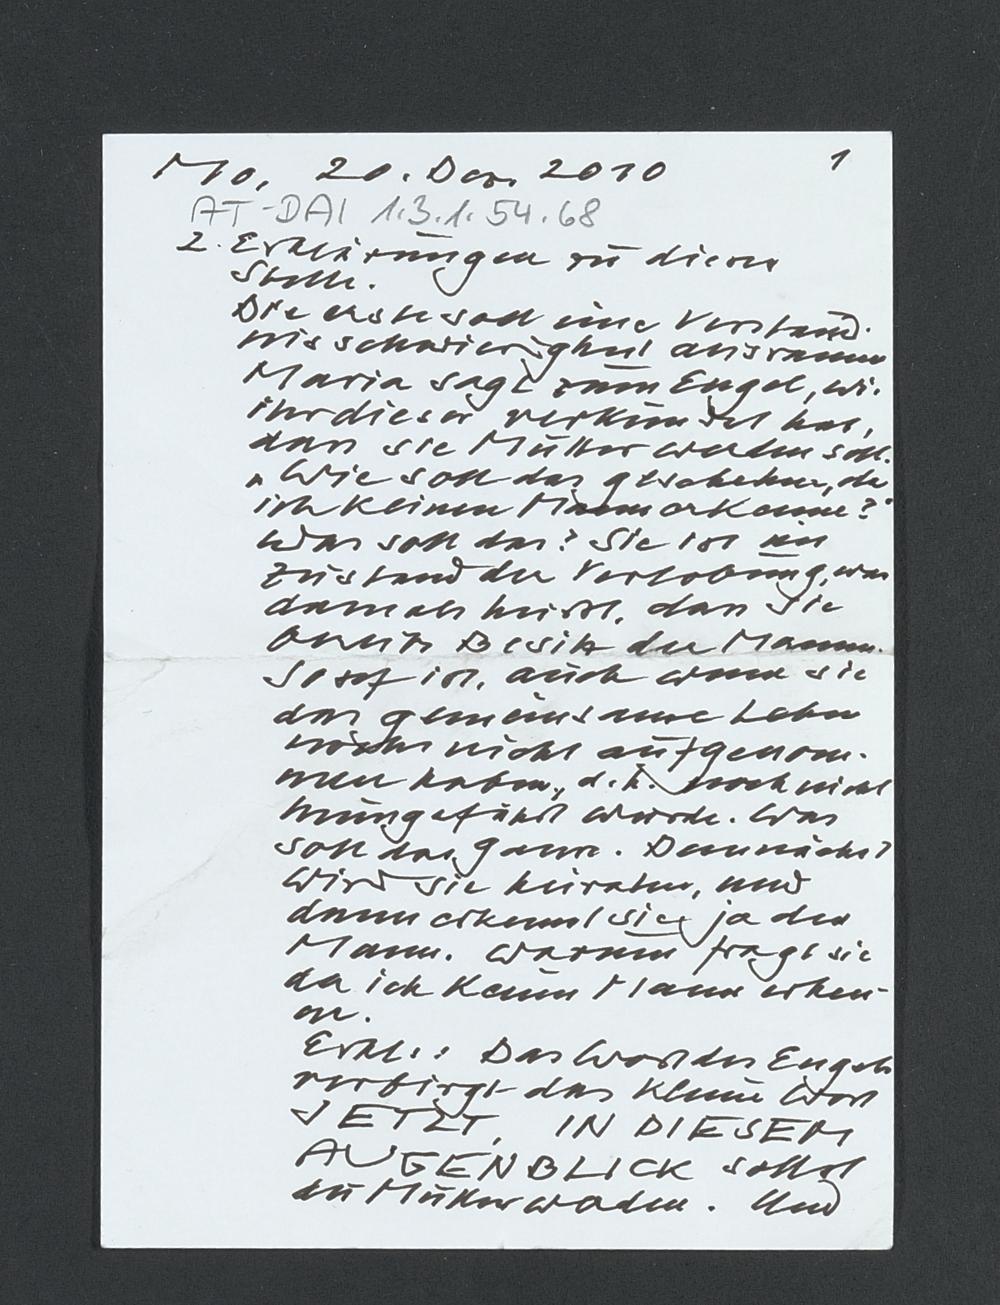 Mo, 20. Dez. 2010 1
AT-DAI 1.3.1.54.68
2. Erklärungen zu dieser
Stelle.
Die erste soll eine Verständ-
nisschwierigkeit ausräumen
Maria sagt zum Engel, wie
ihr dieser verkündet hat,
dass sie Mutter werden soll.
„Wie soll das geschehen, da
ich keinen Mann erkenne?"
Was soll das? Sie ist im
Zustand der Verlobung, was
damals heisst, dass sie
bereits Besitz des Mannes
Josef ist, auch wenn sie
das gemeinsame Leben
noch nicht aufgenom-
men haben, d.h. noch nicht
heimgeführt wurde. Was
soll das ganze. Demnächst
wird sie heiraten, und
dann erkennt sie ja den
Mann. Warum fragt sie
da ich keinen Mann erken-
ne.
Erkl.: Das Wort des Engels
verbirgt das kleine Wort
JETZT, IN DIESEM
AUGENBLICK sollst
du Mutter werden. Und